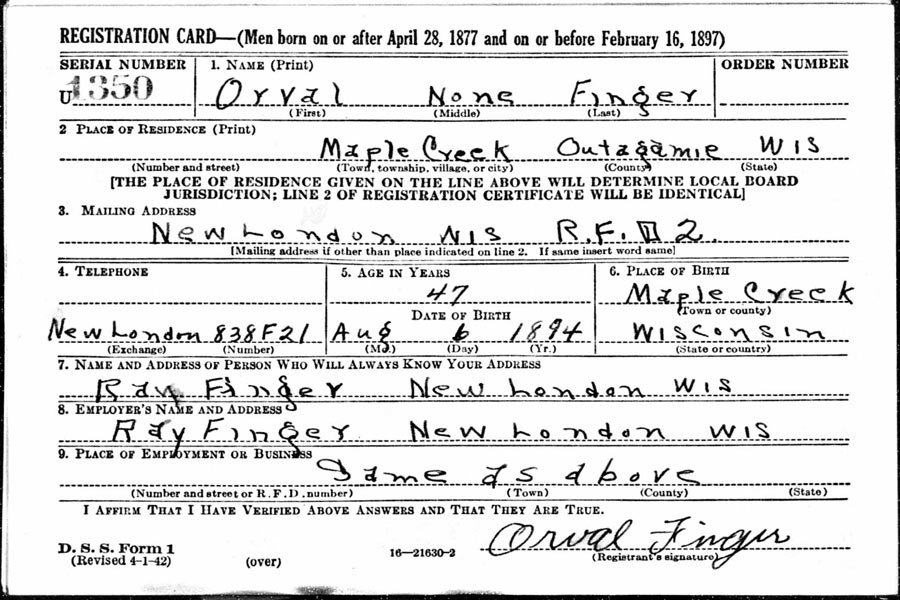 REGISTRATION CARD—(Men born on or after April 28, 1877 and on or before February 16, 1897)
SERIAL NUMBER 1. NAME (Print) ORDER NUMBER
U 1350 Orval None Finger
(First) (Middle) (Last)
2 PLACE OF RESIDENCE (Print)
Maple Creek Outagamie Wis
(Number and street) (Town, township, village, or city) (County) (State)
[THE PLACE OF RESIDENCE GIVEN ON THE LINE ABOVE WILL DETERMINE LOCAL BOARD
JURISDICTION; LINE 2 OF REGISTRATION CERTIFICATE WILL BE IDENTICAL]
3. MAILING ADDRESS
New London Wis R.F.D 2.
[Mailing address if other than place indicated on line 2. If same insert word same]
4. TELEPHONE 5. AGE IN YEARS 6. PLACE OF BIRTH
47 Maple Creek
DATE OF BIRTH (Town or county)
New London 838F21 Aug 6 1894 Wisconsin
(Exchange) (Number) (Mo.) (Day) (Yr.) (State or country)
7. NAME AND ADDRESS OF PERSON WHO WILL ALWAYS KNOW YOUR ADDRESS
Ray Finger New London Wis
8. EMPLOYER'S NAME AND ADDRESS
Ray Finger New London Wis
9. PLACE OF EMPLOYMENT OR BUSINESS
Same as above
(Number and street or R.F.D. number) (Town) (County) (State)
I AFFIRM THAT I HAVE VERIFIED ABOVE ANSWERS AND THAT THEY ARE TRUE.
Orval Finger
D. S. S. Form 1 16—21630-2 (Registrant's signature)
(Revised 4-1-42) (over)